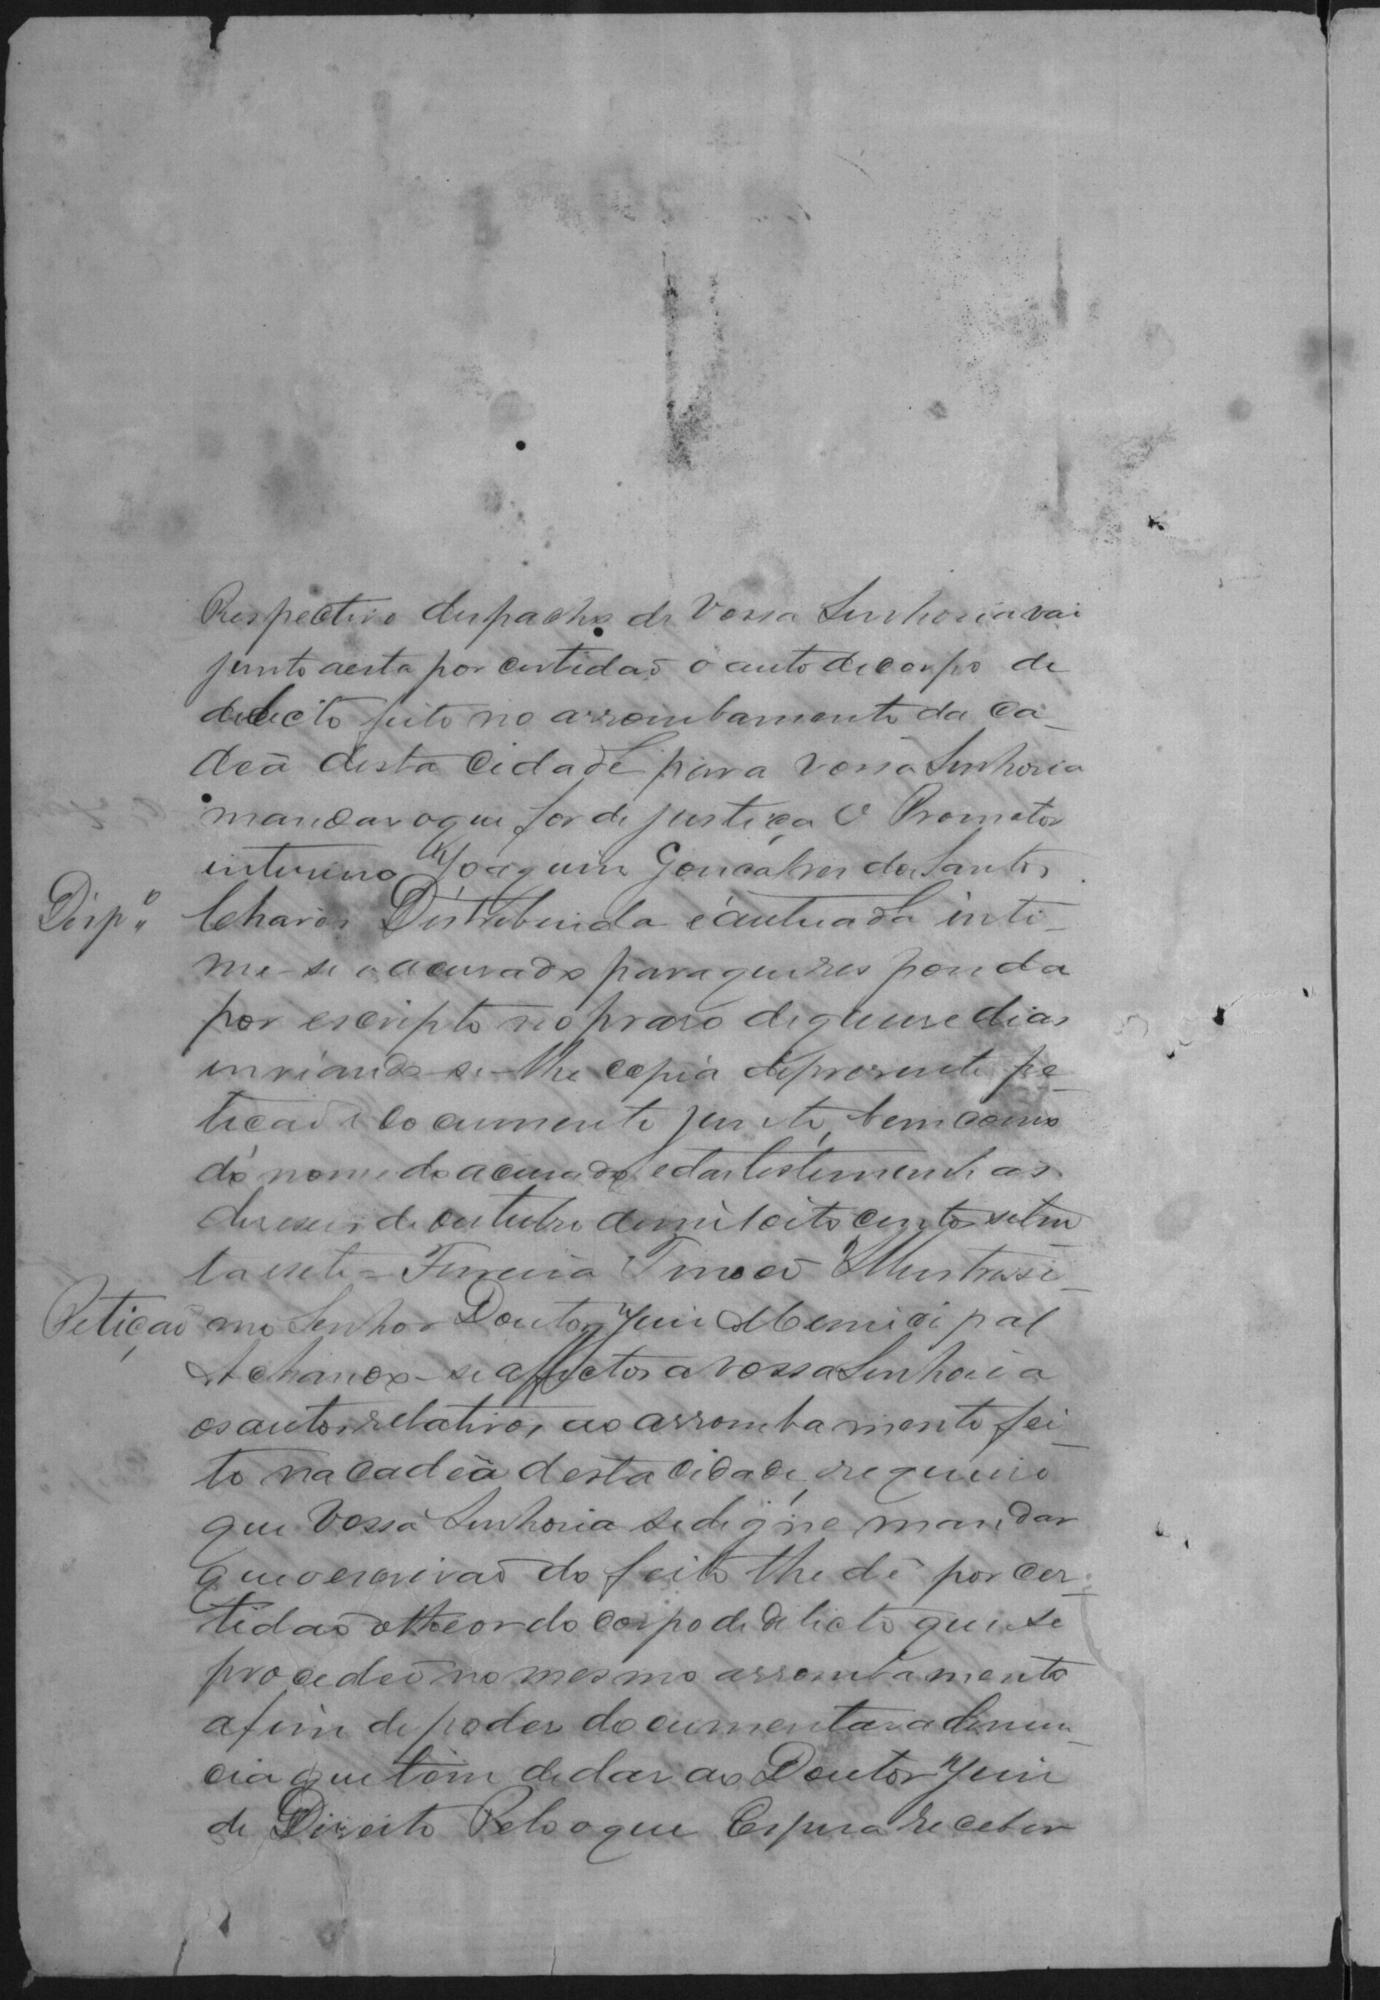 Respectivo despacho de Vossa Senhoria vai
junto a esta por certidaõ o auto de corpo de
delicto feito no arrombamento da ca-
deã desta Cidade para Vossa Senhoria
mandar o que for de justiça O Promotor
interino Joaquim Gonçalves dos Santos
Disp.º Chaves Distribuida e autuada inti-
me-se o accusado para que responda
por escripto no praso de quinse dias
inviando-se-lhe copia do presente pe-
ticaõ e documento junto, bem como
do nome do accusado e das testemunhas
deseseis de outubro de mil oito centos setin
ta e sete - Ferreira Tinocó Illustrissi-
Petiçaõ mo Senhor Doutor Juiz Municipal
Achando-se affectos a Vossa Senhoria
os autos relativos ao arrombamento fei-
to na cadeã desta Cidade, requeiro
que Vossa Senhoria se digne mandar
que o escrivaõ do feito lhe dê por cer-
tidaõ o theor do corpo de delicto que se
procedeo no mesmo arrombamento
afim de poder documentar a denun-
cia que tem de dar ao Doutor Juiz
de Direito Pelo que Espera receber